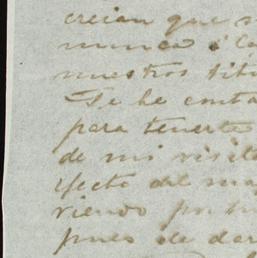 creian que s
nunca á Ca
nuestros titu
Te he conta
para tenerte
de mi visita
efecto del ma
riendo por
pues de dar